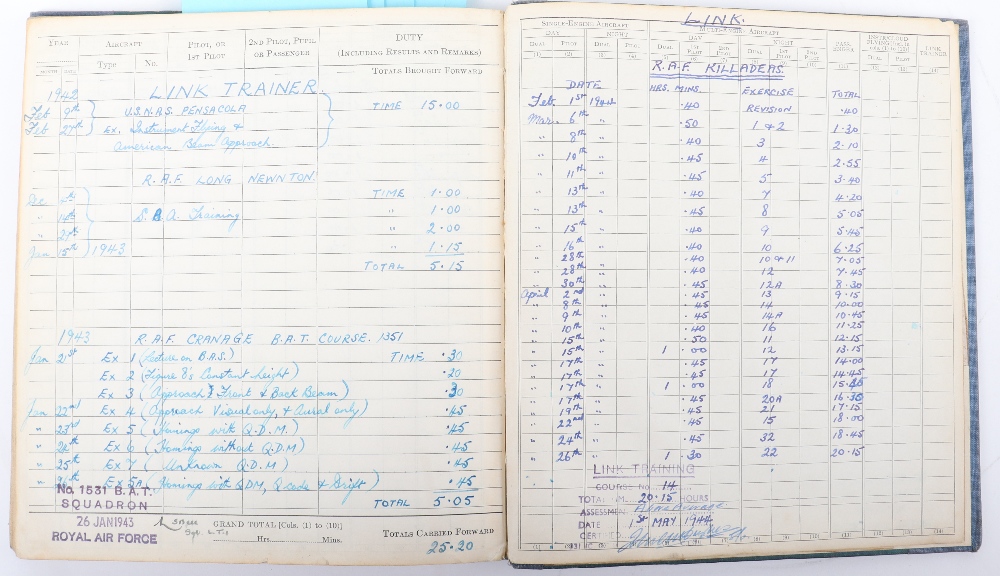 YEAR AIRCRAFT PILOT, OR 2ND PILOT, PUPIL DUTY
MONTH DATE Type No. 1ST PILOT OR PASSENGER (INCLUDING RESULTS AND REMARKS)
TOTALS BROUGHT FORWARD
1942 LINK TRAINER.
Feb 9th U.S.N.A.S. PENSACOLA TIME 15.00
Feb 27th Ex. Instrument Flying &
American Beam Approach.
R.A.F. LONG NEWNTON.
Dec TIME 1.00
" 14th S.B.A. Training " 1.00
" " 2.00
Jan 15th 1943 " 1.15
TOTAL 5.15
1943 R.A.F. CRANAGE B.A.T. COURSE. 1351
Jan 21st Ex 1 (Lecture on B.A.S.) TIME .30
Ex 2 (Figure 8's Constant height) .20
Ex 3 (Approach & Front & Back Beam) .30
Jan 22nd Ex 4 (Approach Visual only, & Aural only) .45
" 23rd Ex 5 (Homings with Q.D.M.) .45
" 24th Ex 6 (Homings without Q.D.M) .45
" 25th Ex 7 (Unknown Q.D.M) .45
" 26th Ex 5A (Homings with QDM, Q code & Bright) .45
TOTAL 5.05
No. 1531 B.A.T.
SQUADRON
26 JAN 1943
ROYAL AIR FORCE
GRAND TOTAL [Cols. (1) to (10)]
Hrs. Mins.
TOTALS CARRIED FORWARD
25.20
LINK.
SINGLE-ENGINE AIRCRAFT MULTI-ENGINE AIRCRAFT
DAY NIGHT DAY NIGHT PASSENGER LINK TRAINER
DUAL PILOT DUAL PILOT DUAL 1ST PILOT 2ND PILOT DUAL 1ST PILOT 2ND PILOT DUAL PILOT
R.A.F. KILLADEAS.
DATE HRS. MINS. EXERCISE TOTAL
Feb. 1st 1944 .40 REVISION .40
Mar. 6th " .50 1 & 2 1.30
" 8th " .40 3 2.10
" 10th " .45 4 2.55
" 11th " .45 5 3.40
" 13th " .40 7 4.20
" 13th " .45 8 5.05
" 15th " .40 9 5.45
" 16th " .40 10 6.25
" 28th " .40 10 & 11 7.05
" 28th " .40 12 7.45
" 30th " .45 12A 8.30
April 2nd " .45 13 9.15
" 8th " .45 14 10.00
" 9th " .45 14A 10.45
" 10th " .40 16 11.25
" 15th " .50 11 12.15
" 15th " 1.00 12 13.15
" 17th " .45 17 14.00
" 17th " .45 17 14.45
" 17th " 1.00 18 15.45
" 17th " .45 20A 16.30
" 19th " .45 21 17.15
" 22nd " .45 15 18.00
" 24th " .45 32 18.45
" 26th " 1.30 22 20.15
LINK TRAINING
COURSE No. 14
TOTAL 20.15 HOURS
ASSESSMENT
DATE 1st MAY 1944